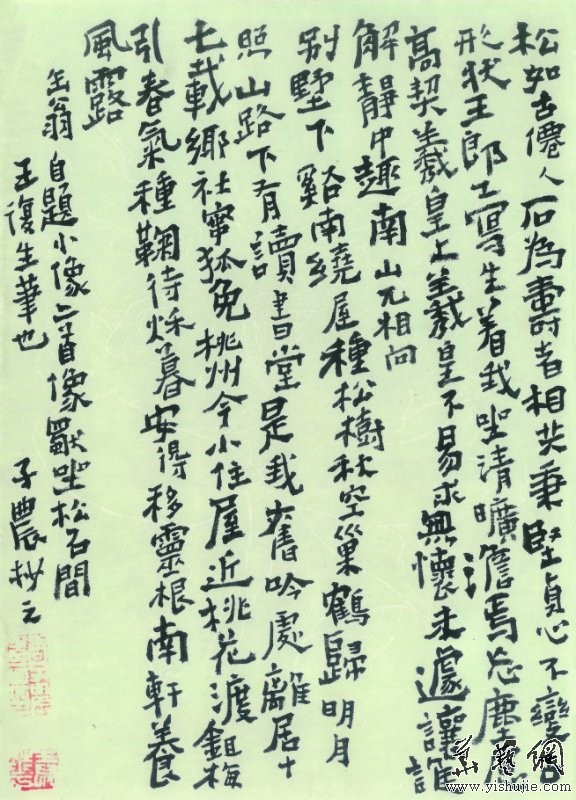 松如古僊人石為壽者相共秉堅貞心不變古
形狀王郎工寫生着我坐清曠澹焉忘塵慮
高契羲皇上羲皇不易求無懷未遽讓誰
解靜中趣南山兀相向
别墅下谿南繞屋種松樹秋空巢鶴歸明月
照山路下有讀書堂是我舊吟處離居十
七載鄉社寧狐兔桃州今小住屋近桃花渡鉏梅
引春氣種鞠待秌暮安得移靈根南軒養
風露
缶翁自題小像二首像坐松石間
王復生筆也 子農抄
華藝網
www.yishujie.com